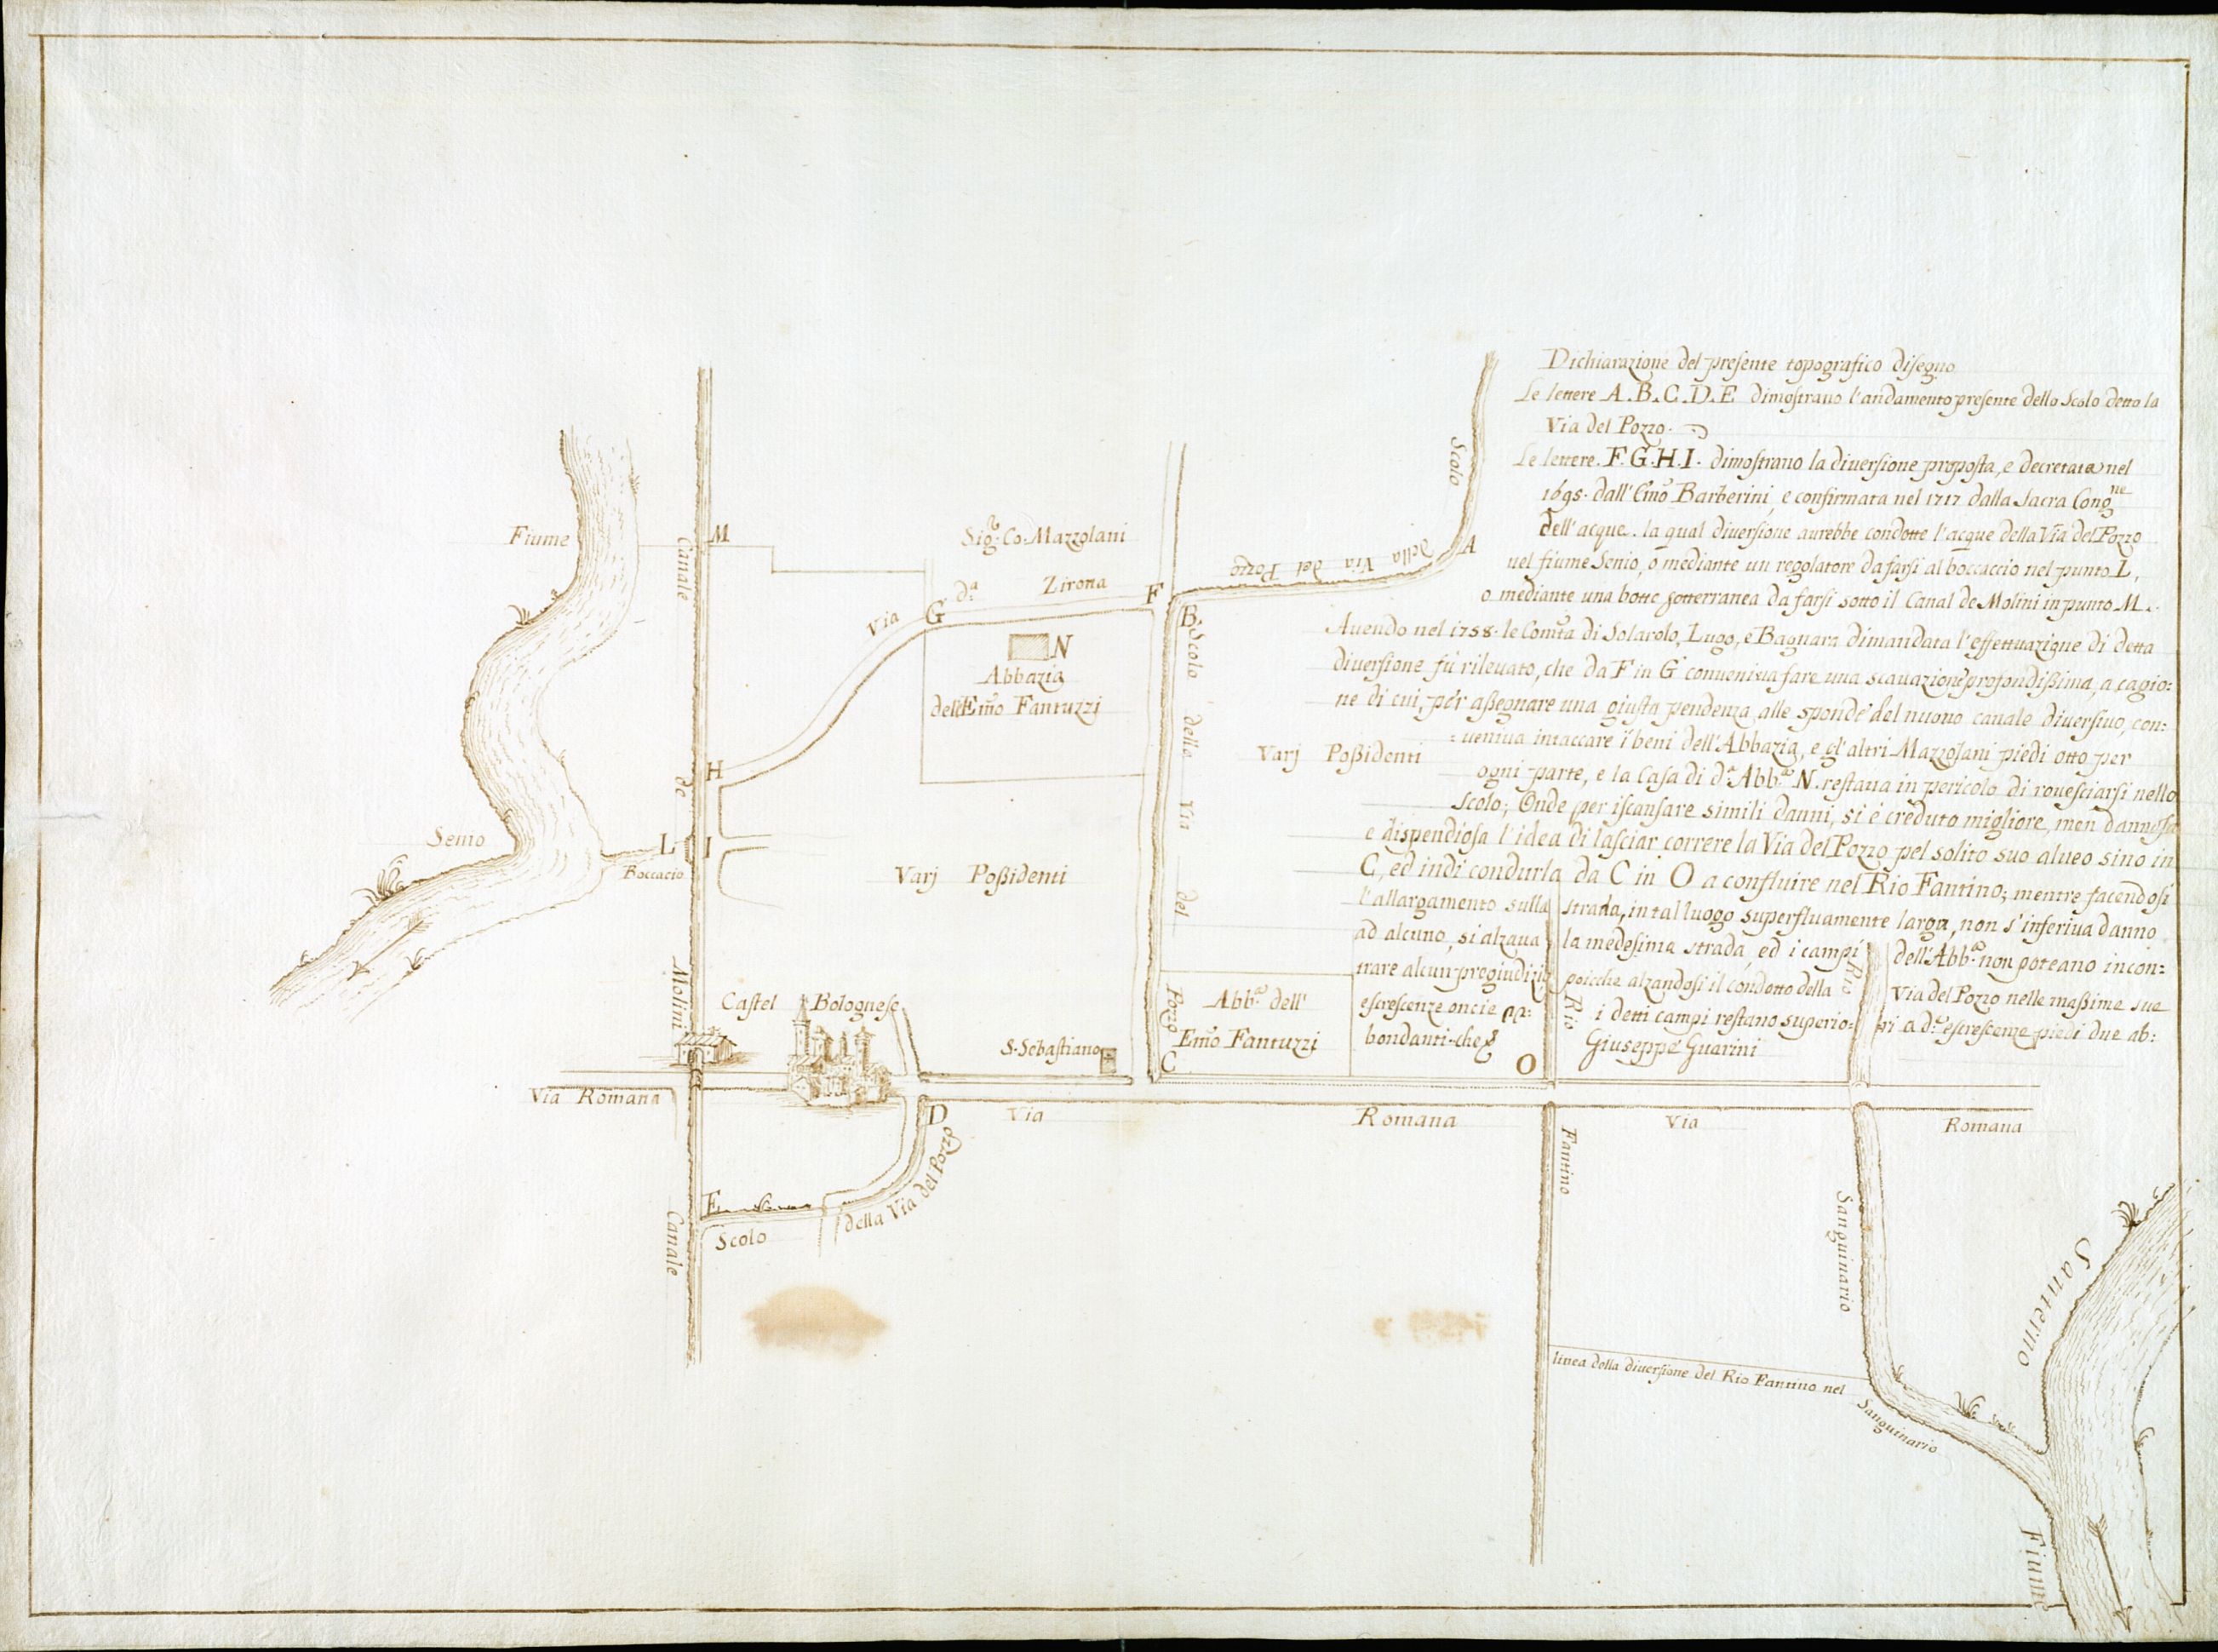 Dichiarazione del presente topografico disegno
Le lettere A.B.C.D.E dimostrano l'andamento presente dello Scolo detto la
Via del Pozzo.
Le lettere F.G.H.I. dimostrano la diversione proposta, e decretata nel
1695. dall'Emo Barberini, e confirmata nel 1717 dalla Sacra Congne
dell'acque. la qual diversione aurebbe condotte l'acque della Via del Pozzo
nel fiume Senio, o mediante un regolatore da farsi al boccaccio nel punto L,
o mediante una botte sotterranea da farsi sotto il Canal de Molini in punto M.
Auendo nel 1758. le Comta di Solarolo, Lugo, e Bagnara dimandata l'effettuazione di detta
diversione fù rileuato, che da F in G conueniua fare una scauazione profondissima, a cagio:
ne di cui, per assegnare una giusta pendenza alle sponde del nuouo canale diuersiuo, con:
:ueniua intaccare i beni dell'Abbazia, e gl'altri Mazzolani piedi otto per
ogni parte, e la Casa di da. Abba. N. restaua in pericolo di rouesciarsi nello
scolo; Onde per iscansare simili danni, si è creduto migliore, men dannosa
e dispendiosa l'idea di lasciar correre la Via del Pozzo pel solito suo alueo sino in
C, ed indi condurla da C in O a confluire nel Rio Fantino; mentre facendosi
l'allargamento sulla strada, in tal luogo superfluamente larga, non s'inferiua danno
ad alcuno, si alzaua la medesima strada, ed i campi dell'Abba. non poteano incon:
trare alcun pregiudizio poicche alzandosi il condotto della Via del Pozzo nelle massime sue
escrescenze oncie i detti campi restano superio: ri a de. escrescenze piedi due ab:
bondanti che
Giuseppe Guarini
Scolo
della Via del Pozzo
A
Fiume
Senio
Canale
de
Molini
Canale
M
Sig. Co. Mazzolani
Via
G
da.
Zirona
F
B
N
Abbazia
dell'Emo Fantuzzi
H
L
I
Boccacio
Varj Possidenti
Varj Possidenti
Scolo della Via del Pozzo
Castel Bolognese
S. Sebastiano
Abba. dell'
Emo Fantuzzi
C
O
Rio
Rio
Via Romana
D
Via Romana
Via Romana
E
Scolo
della Via del Pozzo
Fantino
Sanguinario
linea della diversione del Rio Fantino nel
Sanguinario
Santerno
Fiume